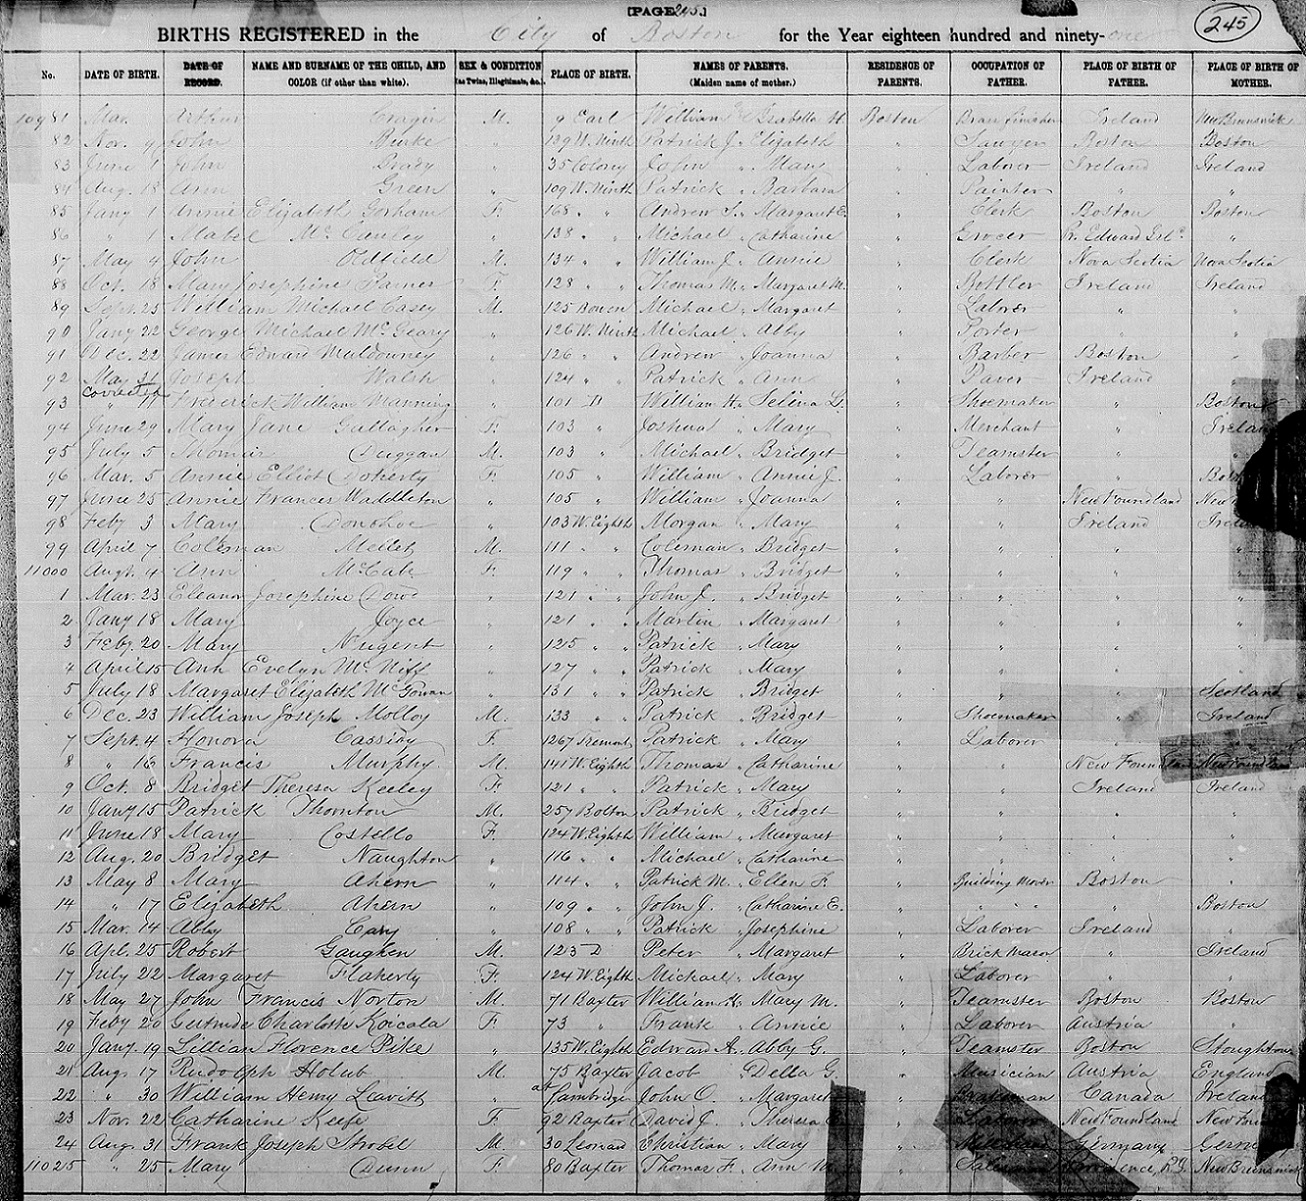 [PAGE 245.]
245
BIRTHS REGISTERED in the City of Boston for the Year eighteen hundred and ninety-one
No. DATE OF BIRTH. DATE OF RECORD. NAME AND SURNAME OF THE CHILD, AND COLOR (if other than white). SEX & CONDITION (as Twins, Illegitimate, &c.) PLACE OF BIRTH. NAMES OF PARENTS. (Maiden name of mother.) RESIDENCE OF PARENTS. OCCUPATION OF FATHER. PLACE OF BIRTH OF FATHER. PLACE OF BIRTH OF MOTHER.
10981 Mar. Arthur Cragin M. 9 Earl William & Isabella H. Boston Brass finisher Ireland New Brunswick
82 Nov. 9 John Burke " 139 W. Ninth Patrick J. " Elizabeth " Sawyer Boston Boston
83 June 1 John Brady " 35 Colony John " Mary " Laborer Ireland Ireland
84 Aug. 18 Ann Green " 109 W. Ninth Patrick " Barbara " Painter " "
85 Jany 1 Annie Elizabeth Gorham F. 168 " " Andrew S. " Margaret E. " Clerk Boston Boston
86 " 1 Mabel McCauley " 138 " " Michael " Catharine " Grocer P. Edward Isld. "
87 May 4 John Oldfield M. 134 " " William J. " Annie " Clerk Nova Scotia Nova Scotia
88 Oct. 18 Mary Josephine Barnes F. 128 " " Thomas M. " Margaret M. " Bottler Ireland Ireland
89 Sept. 25 William Michael Casey M. 125 Bowen Michael " Margaret " Laborer " "
90 Jany 22 George Michael McGeary " 126 W. Ninth Michael " Abby " Porter " "
91 Dec. 22 James Edward Muldowney " 126 " " Andrew " Joanna " Barber Boston "
92 May 31 Joseph Walsh " 124 " " Patrick " Ann " Paver Ireland
Corrected
93 " 11 Frederick William Manning " 101 D William H. " Selina G. " Shoemaker " Boston
94 June 29 Mary Jane Gallagher F. 103 " Joshua " Mary " Merchant " Ireland
95 July 5 Thomas Duggan M. 103 " Michael " Bridget " Teamster "
96 Mar. 5 Annie Elliot Doherty F. 105 " William " Annie J. " Laborer "
97 June 25 Annie Frances Waddleton " 105 " William " Joanna " " New Foundland
98 Feby 3 Mary Donohoe " 103 W. Eighth Morgan " Mary " " Ireland
99 April 7 Coleman Mellet M. 111 " " Coleman " Bridget " " " "
11000 Augt. 4 Ann McCabe F. 119 " " Thomas " Bridget " " " "
1 Mar. 23 Eleanor Josephine Dowe " 121 " " John J. " Bridget " " " "
2 Jany 18 Mary Joyce " 121 " " Martin " Margaret " " " "
3 Feby. 20 Mary Nugent " 125 " " Patrick " Mary " " " "
4 April 15 Ann Evelyn McNiff " 127 " " Patrick " Mary " " " "
5 July 18 Margaret Elizabeth McGowan " 131 " " Patrick " Bridget " " " Scotland
6 Dec. 23 William Joseph Molloy M. 133 " " Patrick " Bridget " Shoemaker " Ireland
7 Sept. 4 Honora Cassidy F. 1267 Tremont Patrick " Mary " Laborer " "
8 " 16 Francis Murphy M. 141 W. Eighth Thomas " Catharine " " New Foundland New Foundland
9 Oct. 8 Bridget Theresa Keeley F. 121 " " Patrick " Mary " " Ireland Ireland
10 Jany 15 Patrick Thornton M. 257 Bolton Patrick " Bridget " " " "
11 June 18 Mary Costello F. 124 W. Eighth William " Margaret " " " "
12 Aug. 20 Bridget Naughton " 116 " " Michael " Catharine " " " "
13 May 8 Mary Ahern " 114 " " Patrick M. " Ellen F. " Building Mover Boston "
14 " 17 Elizabeth Ahern " 109 " " John J. " Catharine E. " " " " Boston
15 Mar. 14 Abby Cary " 108 " " Patrick " Josephine " Laborer Ireland "
16 Apl. 25 Robert Gaughen M. 123 D Peter " Margaret " Brick Mason " Ireland
17 July 22 Margaret Flaherty F. 124 W. Eighth Michael " Mary " Laborer " "
18 May 27 John Francis Norton M. 71 Baxter William H. " Mary M. " Teamster Boston Boston
19 Feby 20 Gertrude Charlotte Koicala F. 73 " Frank " Annie " Laborer Austria "
20 Jany. 19 Lillian Florence Pike " 135 W. Eighth Edward A. " Abby G. " Teamster Boston Stoughton
21 Aug. 17 Rudolph Holub M. 75 Baxter Jacob & Della G. " Musician Austria England
22 " 30 William Henry Leavitt " at Cambridge John O. " Margaret " Canada Ireland
23 Nov. 22 Catharine Keefe F. 92 Baxter David J. " Theresa " Laborer New Foundland
24 Aug. 31 Frank Joseph Strobel M. 30 Leonard Christian " Mary " Germany
11025 " 25 Mary Dunn F. 80 Baxter Thomas F. " Ann M. " Salesman Providence, R.I. New Brunswick